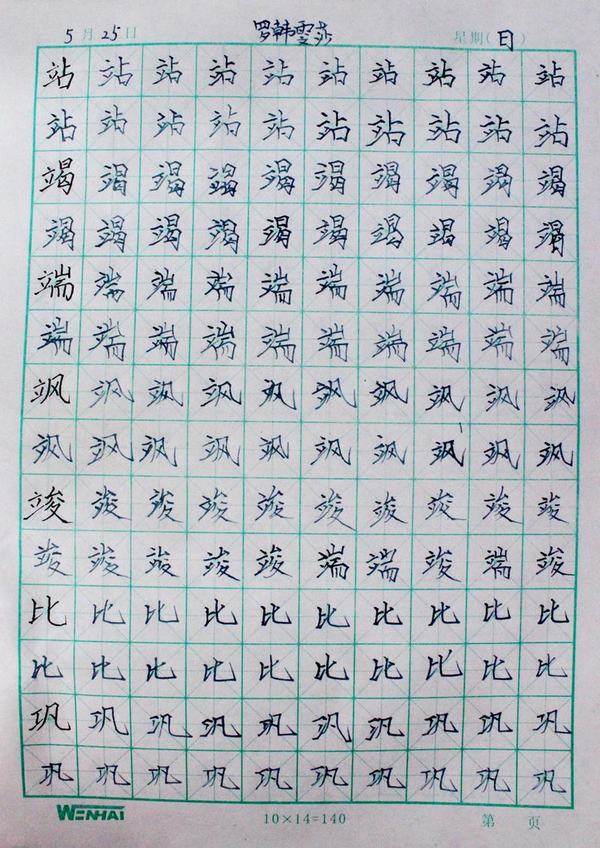 5月25日 罗韩雯莎 星期(日)
站站站站站站站站站站
站站站站站站站站站站
竭竭竭竭竭竭竭竭竭竭
竭竭竭竭竭竭竭竭竭竭
端端端端端端端端端端
端端端端端端端端端端
飒飒飒飒飒飒飒飒飒飒
飒飒飒飒飒飒飒飒飒飒
竣竣竣竣竣竣竣竣竣竣
竣竣竣竣竣端端竣端竣
比比比比比比比比比比
比比比比比比比比比比
巩巩巩巩巩巩巩巩巩巩
巩巩巩巩巩巩巩巩巩巩
WENHAI 10×14=140 第 页